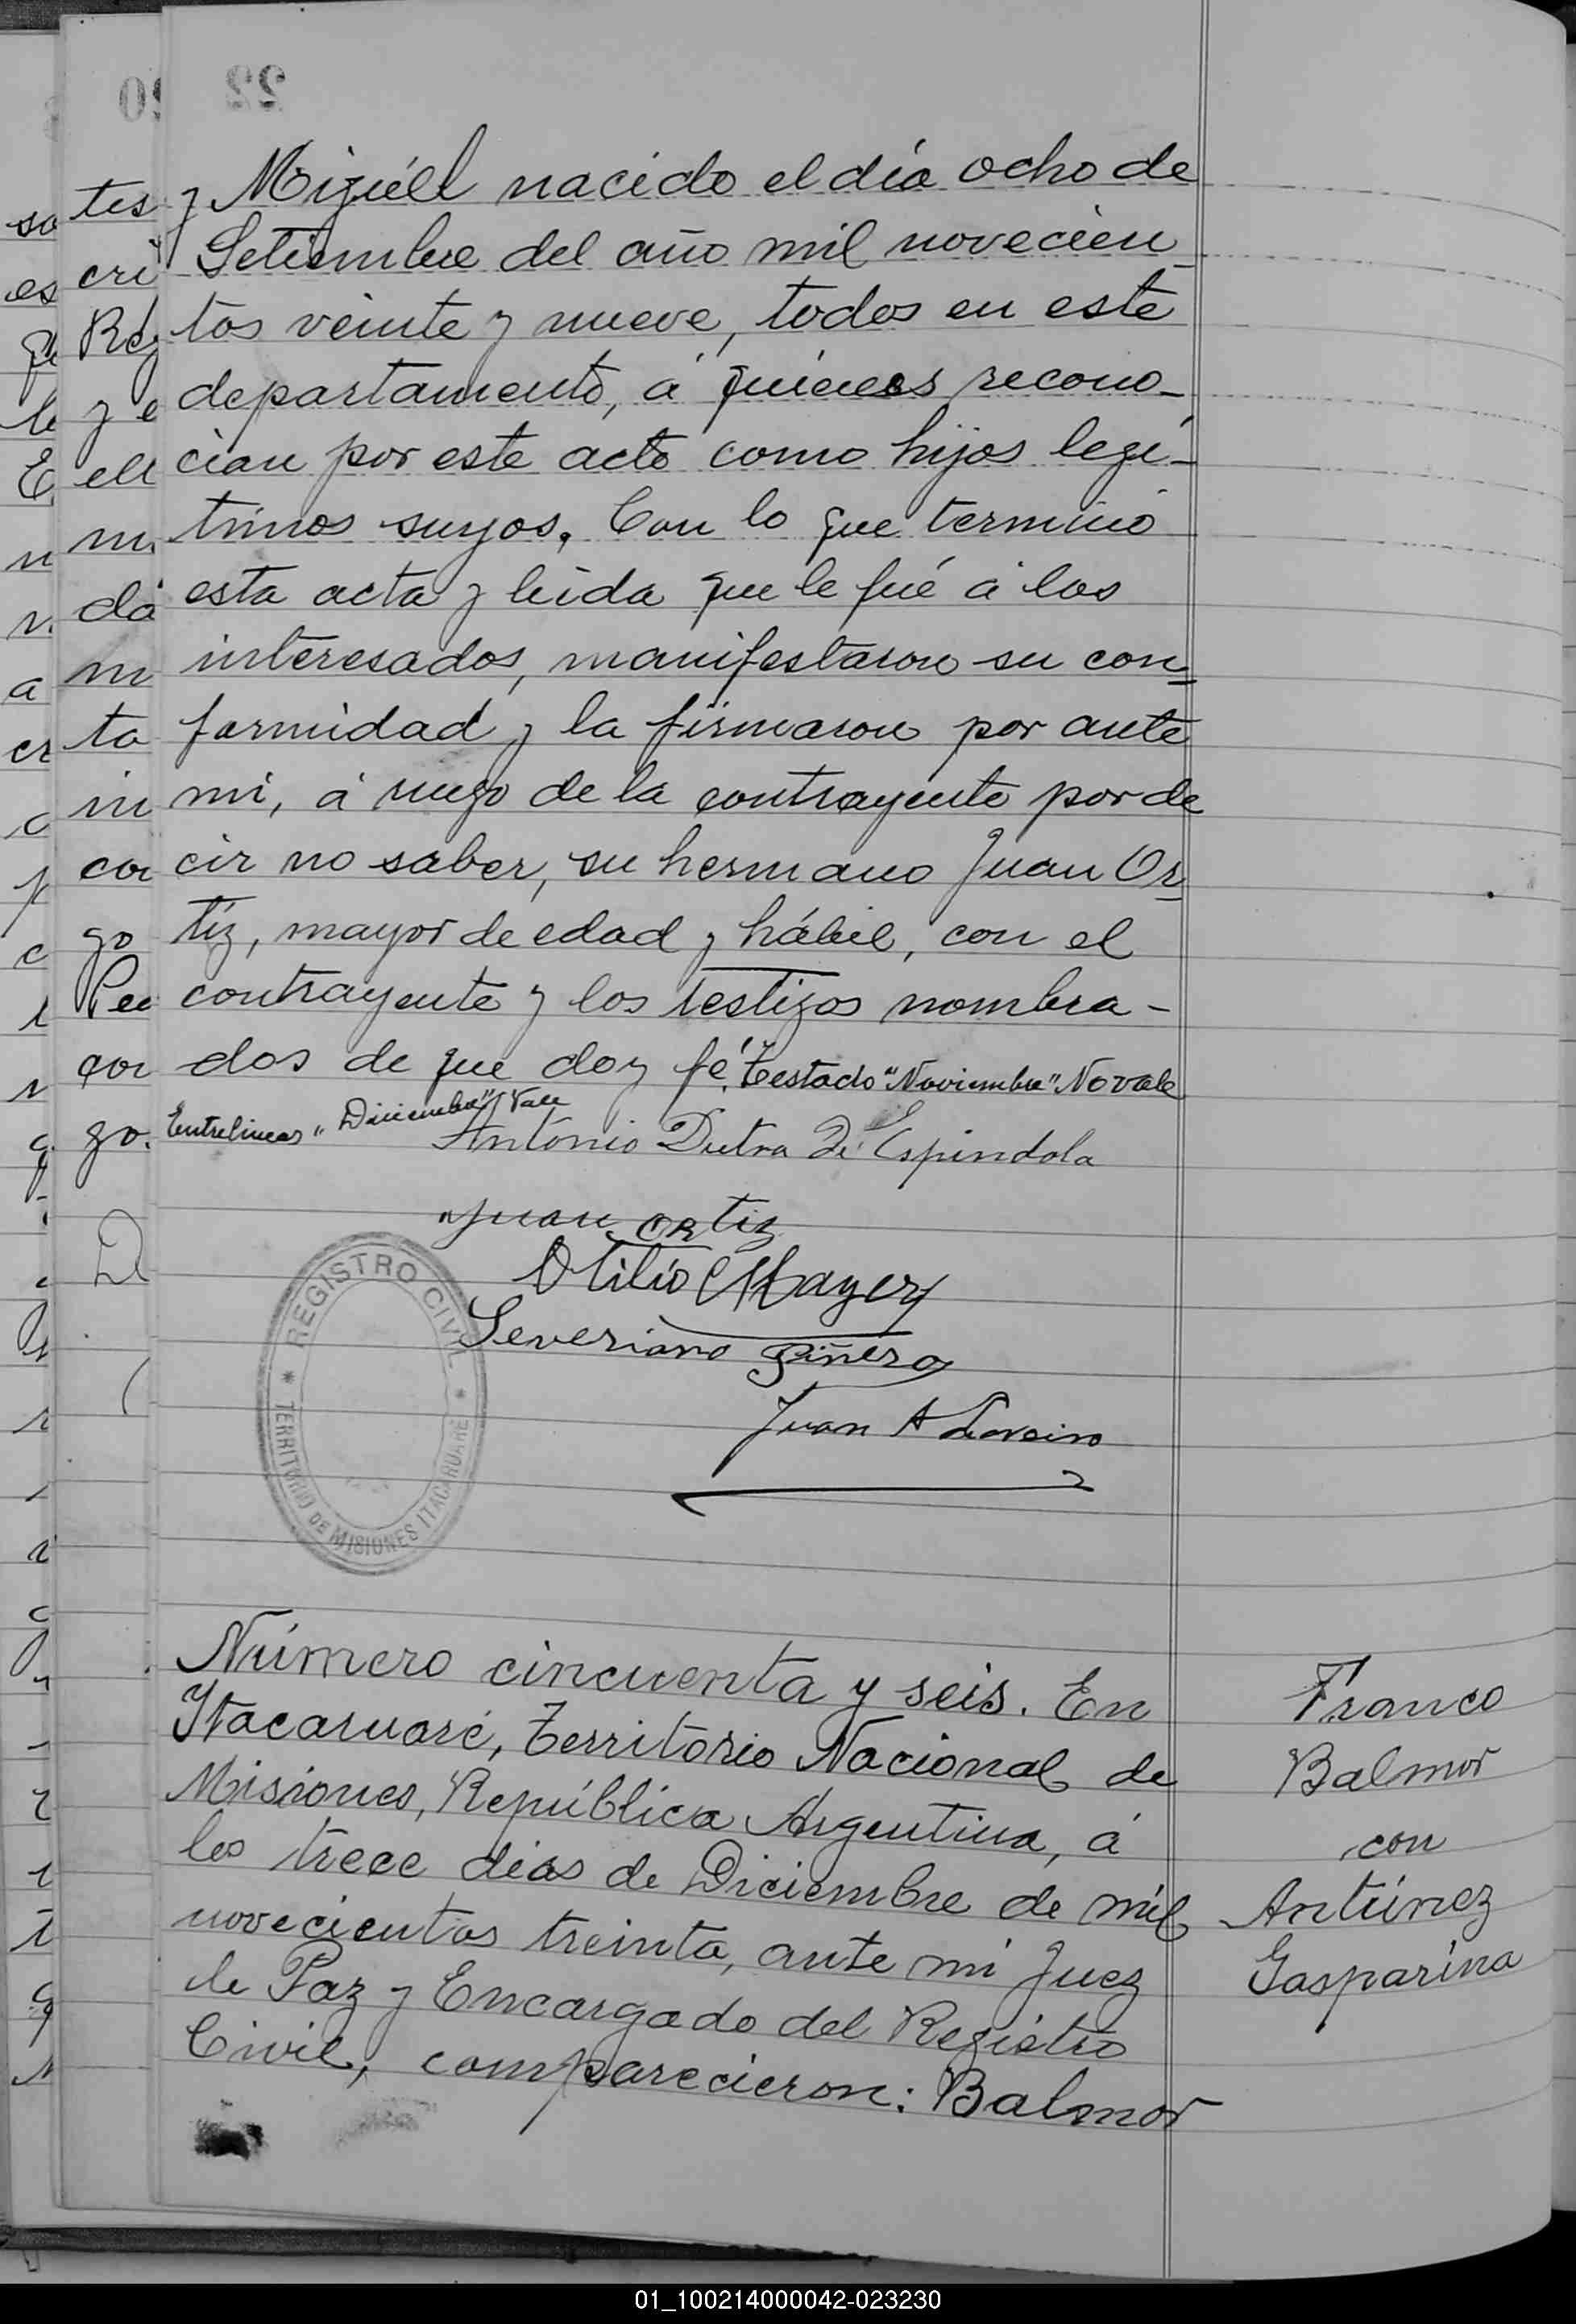 22
y Miguél nacido el día ocho de
Setiembre del año mil novecien
tos veinte y nueve, todos en este
departamento, á quienes recono-
cían por este acto como hijos legí-
timos suyos. Con lo que terminó
esta acta y leída que le fué á los
interesados, manifestaron su con=
formidad y la firmaron por ante
mí, á ruego de la contrayente por de
cir no saber, su hermano Juan Or=
tíz, mayor de edad y hábil, con el
contrayente y los testigos nombra-
dos de que doy fé. Testado "Noviembre" No vale
Entrelineas "Diciembre" Vale
Antonio Dutra Di Espindola
Juan Ortiz
Otilio Mayer
Severiano Piñero
Juan A
REGISTRO CIVIL
* TERRITORIO DE MISIONES ITACARUARÉ *
Número cincuenta y seis. En
Itacaruaré, Territorio Nacional de
Misiones, República Argentina, á
los trece días de Diciembre de mil
novecientos treinta, ante mí Juez
de Paz y Encargado del Registro
Civil, comparecieron: Balmor
Franco
Balmor
con
Antúnez
Gasparina
01_100214000042-023230